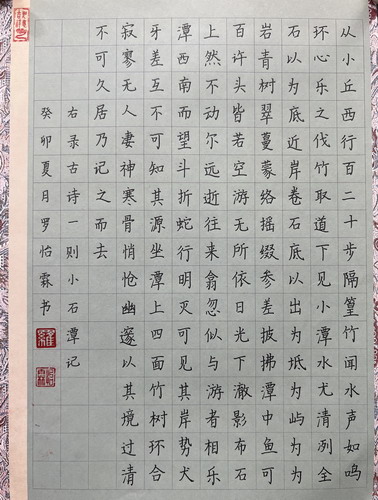 从小丘西行百二十步隔篁竹闻水声如鸣
环心乐之伐竹取道下见小潭水尤清冽全
石以为底近岸卷石底以出为坻为屿为为
岩青树翠蔓蒙络摇缀参差披拂潭中鱼可
百许头皆若空游无所依日光下澈影布石
上然不动尔远逝往来翕忽似与游者相乐
潭西南而望斗折蛇行明灭可见其岸势犬
牙差互不可知其源坐潭上四面竹树环合
寂寥无人凄神寒骨悄怆幽邃以其境过清
不可久居乃记之而去
右录古诗一则小石潭记
癸卯夏月罗怡霖书